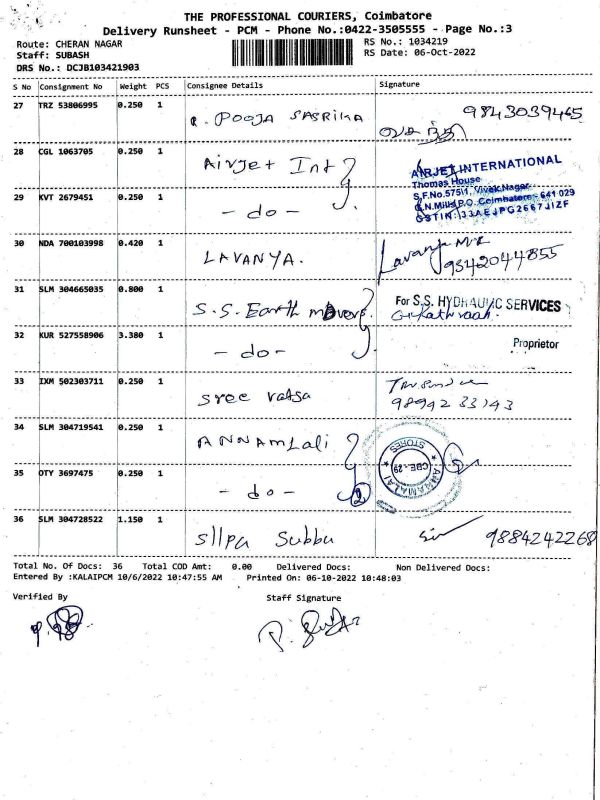 THE PROFESSIONAL COURIERS, Coimbatore
Delivery Runsheet - PCM - Phone No.:0422-3505555 - Page No.:3
Route: CHERAN NAGAR
RS No.: 1034219
Staff: SUBASH
RS Date: 06-Oct-2022
DRS No.: DCJB103421903
S No Consignment No Weight PCS Consignee Details Signature
27 TRZ 53806995 0.250 1 R. POOJA SASRIKA 9843039465
வசந்தி
28 CGL 1063705 0.250 1 Airjet Int
AIRJET INTERNATIONAL
Thomas House
S.F.No.575/1, Vivek Nagar
G.N.Mills P.O. Coimbatore - 641 029
GSTIN: 33AEJPG2667J1ZF
29 KVT 2679451 0.250 1 - do -
30 NDA 700103998 0.420 1 LAVANYA. Lavanya M.R
9342044855
31 SLM 304665035 0.800 1 S.S. Earth movers.
For S.S. HYDRAULIC SERVICES
32 KUR 527558906 3.380 1 - do -
Proprietor
33 IXM 502303711 0.250 1 sree vatsa
9899233143
34 SLM 304719541 0.250 1 ANNAMLali
ANNAMALAI STORES
CBE-29
35 OTY 3697475 0.250 1 - do - 2
36 SLM 304728522 1.150 1 sllpa Subbu 9884242268
Total No. Of Docs: 36 Total COD Amt: 0.00 Delivered Docs: Non Delivered Docs:
Entered By :KALAIPCM 10/6/2022 10:47:55 AM Printed On: 06-10-2022 10:48:03
Verified By Staff Signature